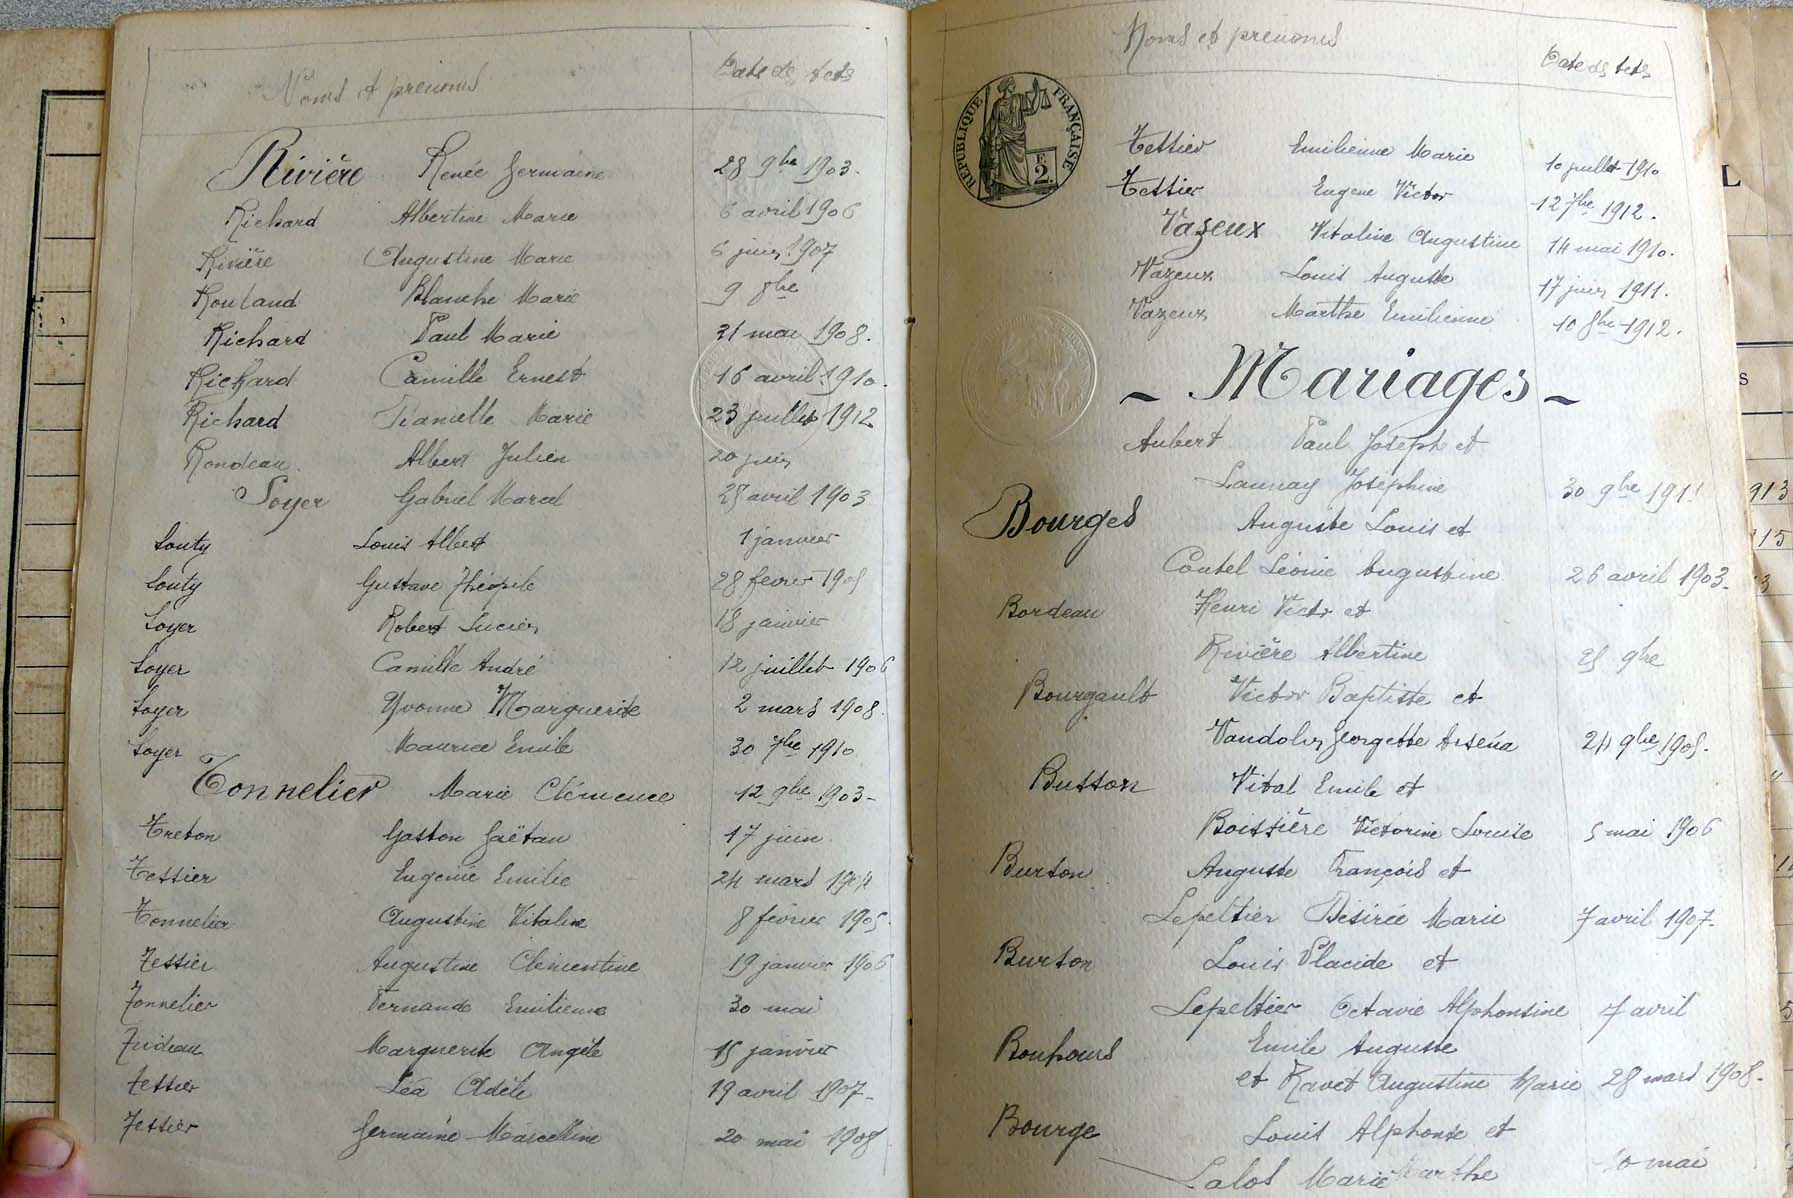 Noms et prénoms Date des actes
Rivière Renée Germaine 28 9bre 1903.
Richard Albertine Marie 6 avril 1906
Rivière Augustine Marie 6 juin 1907
Rouland Blanche Marie 9 8bre
Richard Paul Marie 31 mai 1908.
Richard Camille Ernest 16 avril 1910.
Richard Marie 23 juillet 1912
Rondeau Albert Julien 20 juin
Soyer Gabriel Marcel 25 avril 1903
Souty Louis Albert 1 janvier
Souty Gustave Théophile 28 fevrier 1905
Soyer Robert Lucien 18 janvier
Soyer Camille André 12 juillet 1906
Soyer Yvonne Marguerite 2 mars 1908.
Soyer Maurice Emile 30 7bre 1910
Tonnelier Marie Clémence 12 9bre 1903-
Treton Gaston Gaëtan 17 juin
Tessier Eugenie Emilie 24 mars 1904
Tonnelier Augustine Vitaline 8 février 1905.
Tessier Augustine Clémentine 19 janvier 1906
Tonnelier Fernande Emilienne 30 mai
Marguerite Angèle 15 janvier
Tessier Léa Adèle 19 avril 1907-
Tessier Germaine Marcelline 20 mai 1908
Noms et prenoms Date des actes
RÉPUBLIQUE FRANÇAISE
F.
2.
Tessier Emilienne Marie 10 juillet 1910
Tessier Eugene Victor 12 7bre 1912.
Vazeux Vitaline Augustine 14 mai 1910.
Vazeux Louis Auguste 17 juin 1911.
Vazeux Marthe Emilienne 10 8bre 1912.
- Mariages -
Aubert Paul Joseph et
Launay Joséphine 30 9bre 1911
Bourges Auguste Louis et
Coutel Léonie Augustine 26 avril 1903-
Bordeau Henri Victor et
Rivière Albertine 25 9bre
Bourgault Victor Baptiste et
Georgette Arséna 24 9bre 1905.
Busson Vital Emile et
Boissière Victorine Louise 5 mai 1906
Burson Auguste François et
Lepeltier Désirée Marie 7 avril 1907-
Burson Louis Placide et
Lepeltier Octavie Alphonsine 7 avril
Bouhours Emile Auguste
et Ravet Augustine Marie 28 mars 1908.
Bourge Louis Alphonse et
Lalos Marie Marthe 10 mai